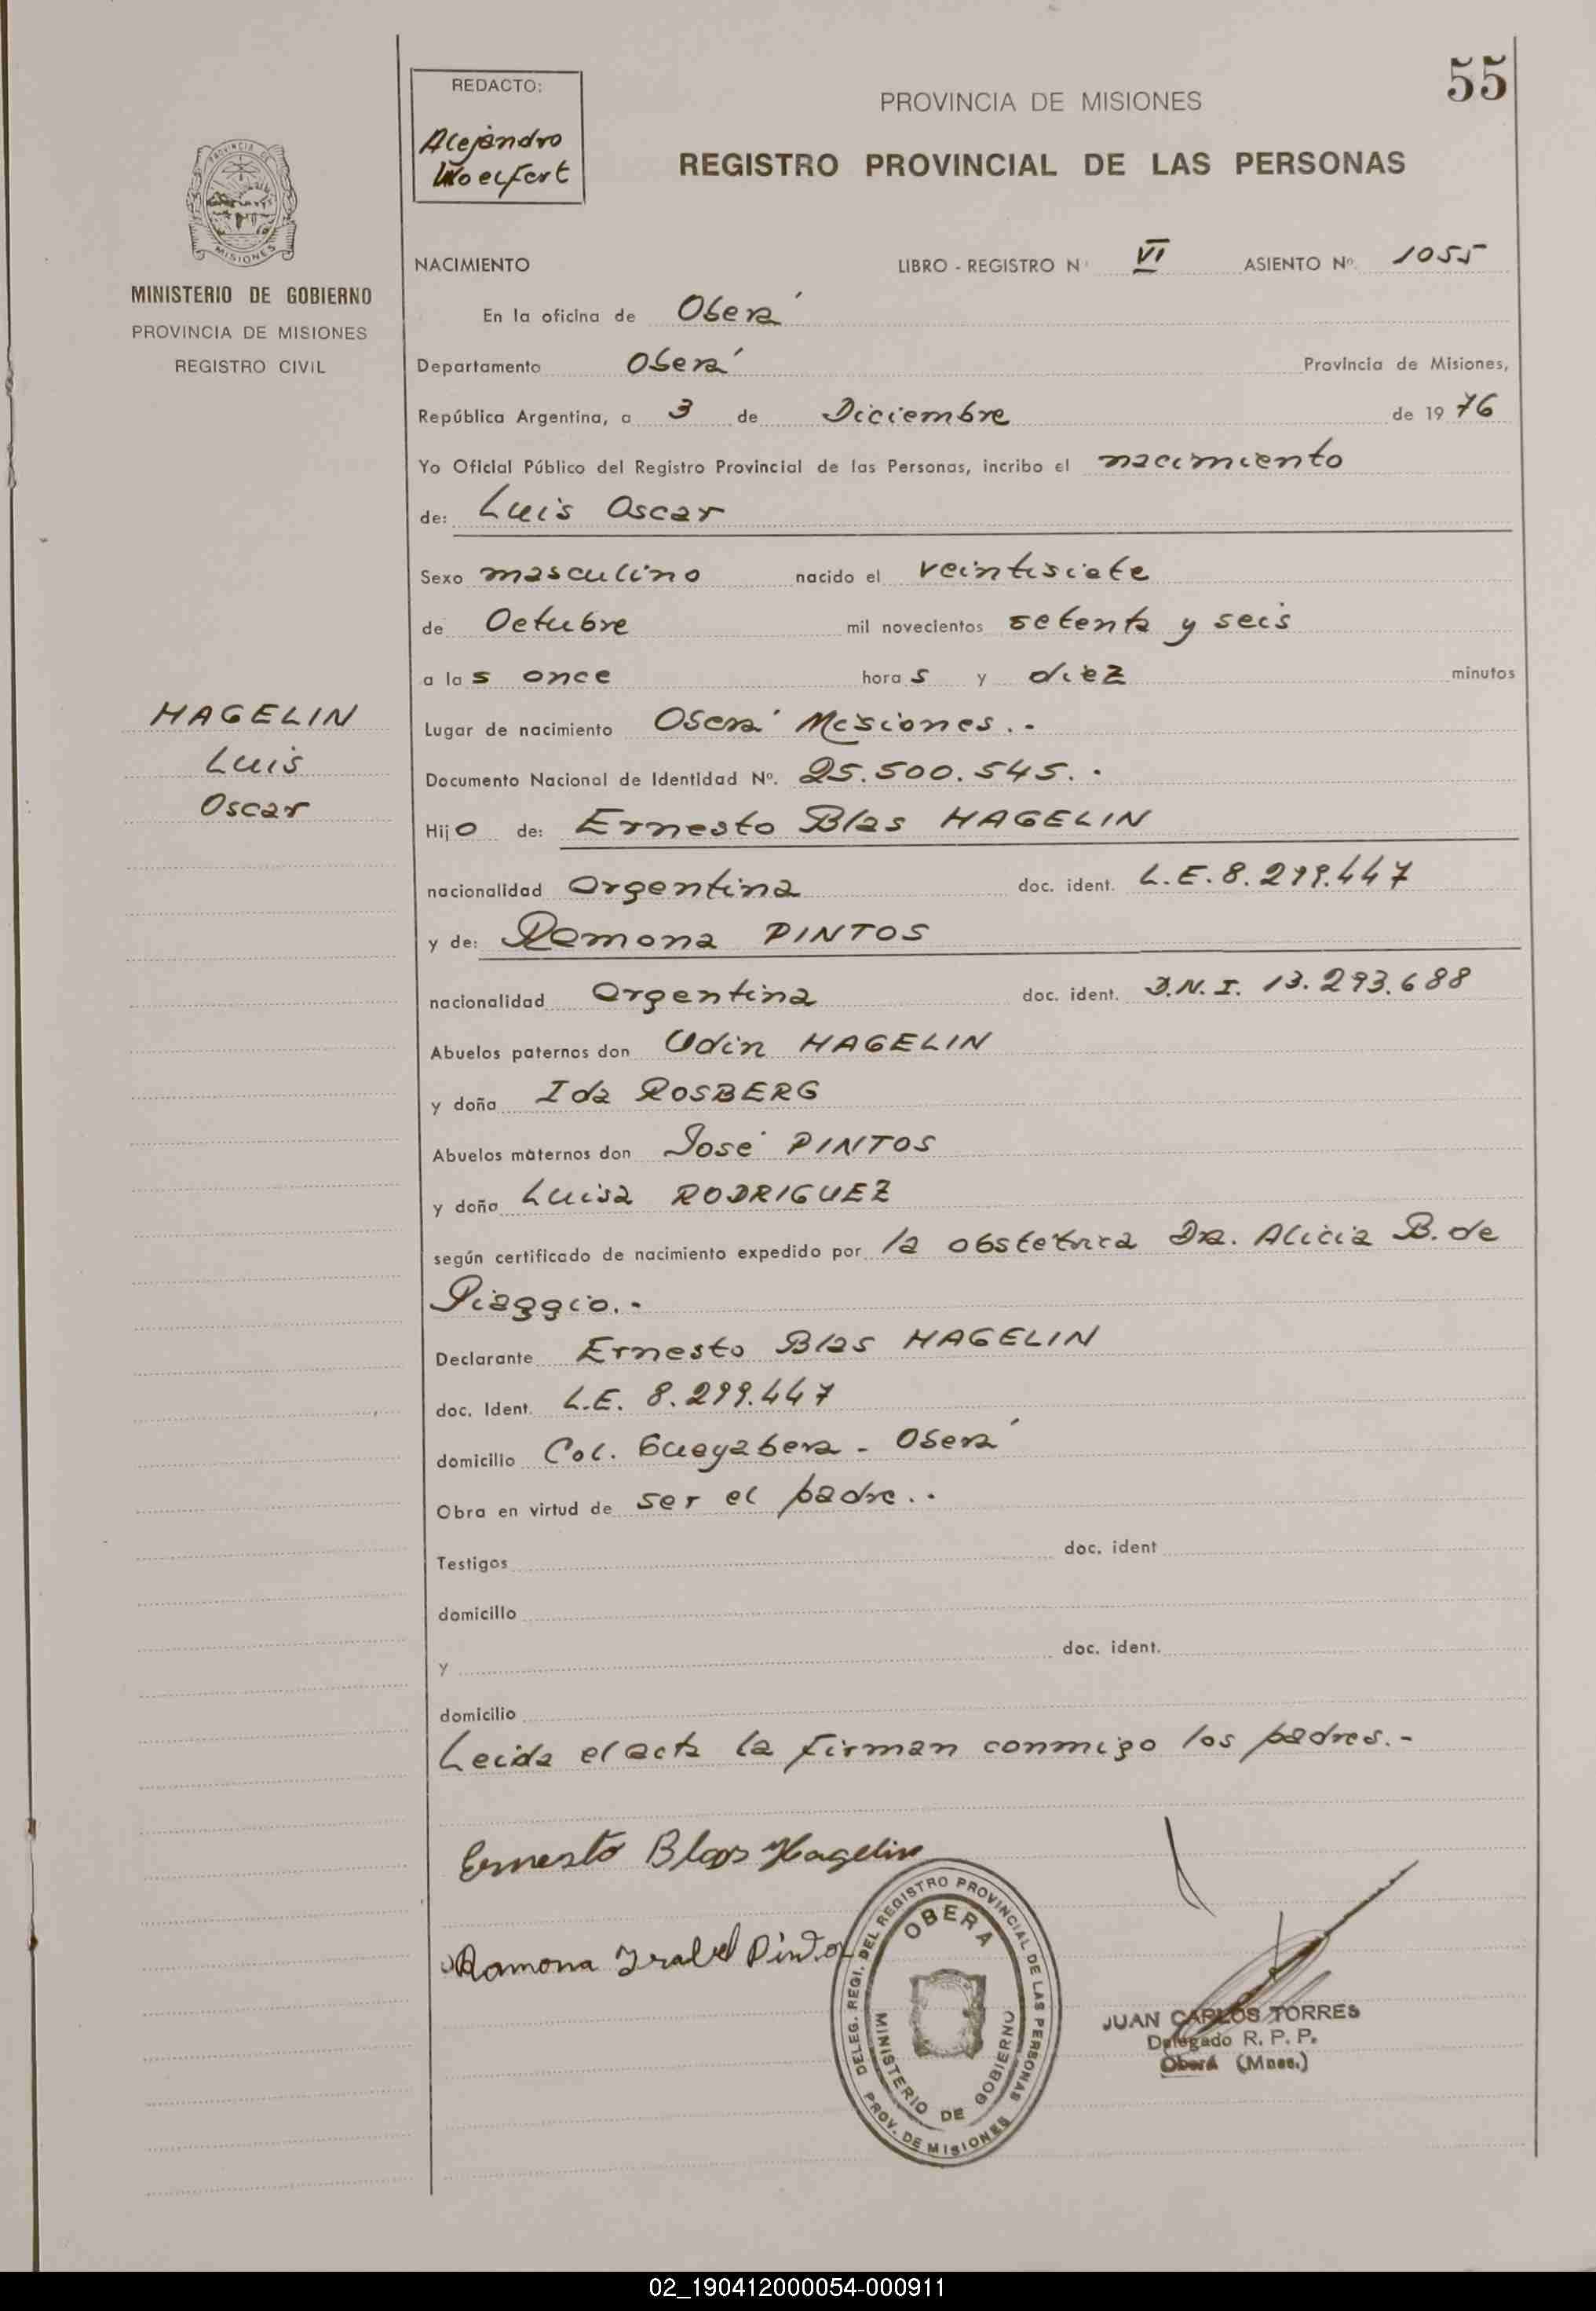 55
REDACTO:
Alejandro
PROVINCIA DE MISIONES
REGISTRO PROVINCIAL DE LAS PERSONAS
PROVINCIA DE
MISIONES
MINISTERIO DE GOBIERNO
PROVINCIA DE MISIONES
REGISTRO CIVIL
NACIMIENTO LIBRO - REGISTRO Nº VI ASIENTO Nº. 1055
En la oficina de Oberá
Departamento Oberá Provincia de Misiones,
República Argentina, a 3 de Diciembre de 1976
Yo Oficial Público del Registro Provincial de las Personas, incribo el nacimiento
de: Luis Oscar
Sexo masculino nacido el veintisiete
de Octubre mil novecientos setenta y seis
a las once horas y diez minutos
Lugar de nacimiento Oberá Misiones.-
Documento Nacional de Identidad Nº. 25.500.545.-
Hijo de: Ernesto Blas HAGELIN
nacionalidad Argentina doc. ident. L.E. 8.299.447
y de: Ramona PINTOS
nacionalidad Argentina doc. ident. D.N.I. 13.293.688
Abuelos paternos don Odin HAGELIN
y doña Ida ROSBERG
Abuelos maternos don José PINTOS
y doña Luisa RODRIGUEZ
según certificado de nacimiento expedido por la obstetrica Dra. Alicia B. de
Piaggio.-
Declarante Ernesto Blas HAGELIN
doc. Ident. L.E. 8.299.447
domicilio Col. Guayabera - Oberá
Obra en virtud de ser el padre.-
Testigos doc. ident
domicilio
y doc. ident.
domicilio
Leida el acta la firman conmigo los padres.-
HAGELIN
Luis
Oscar
Ernesto Blas Hagelin
Ramona Isabel Pintos
DELEG. REGI. DEL REGISTRO PROVINCIAL DE LAS PERSONAS
OBERA
MINISTERIO DE GOBIERNO
PROV. DE MISIONES
JUAN CARLOS TORRES
Delegado R. P. P.
Oberá (Mnes.)
02_190412000054-000911